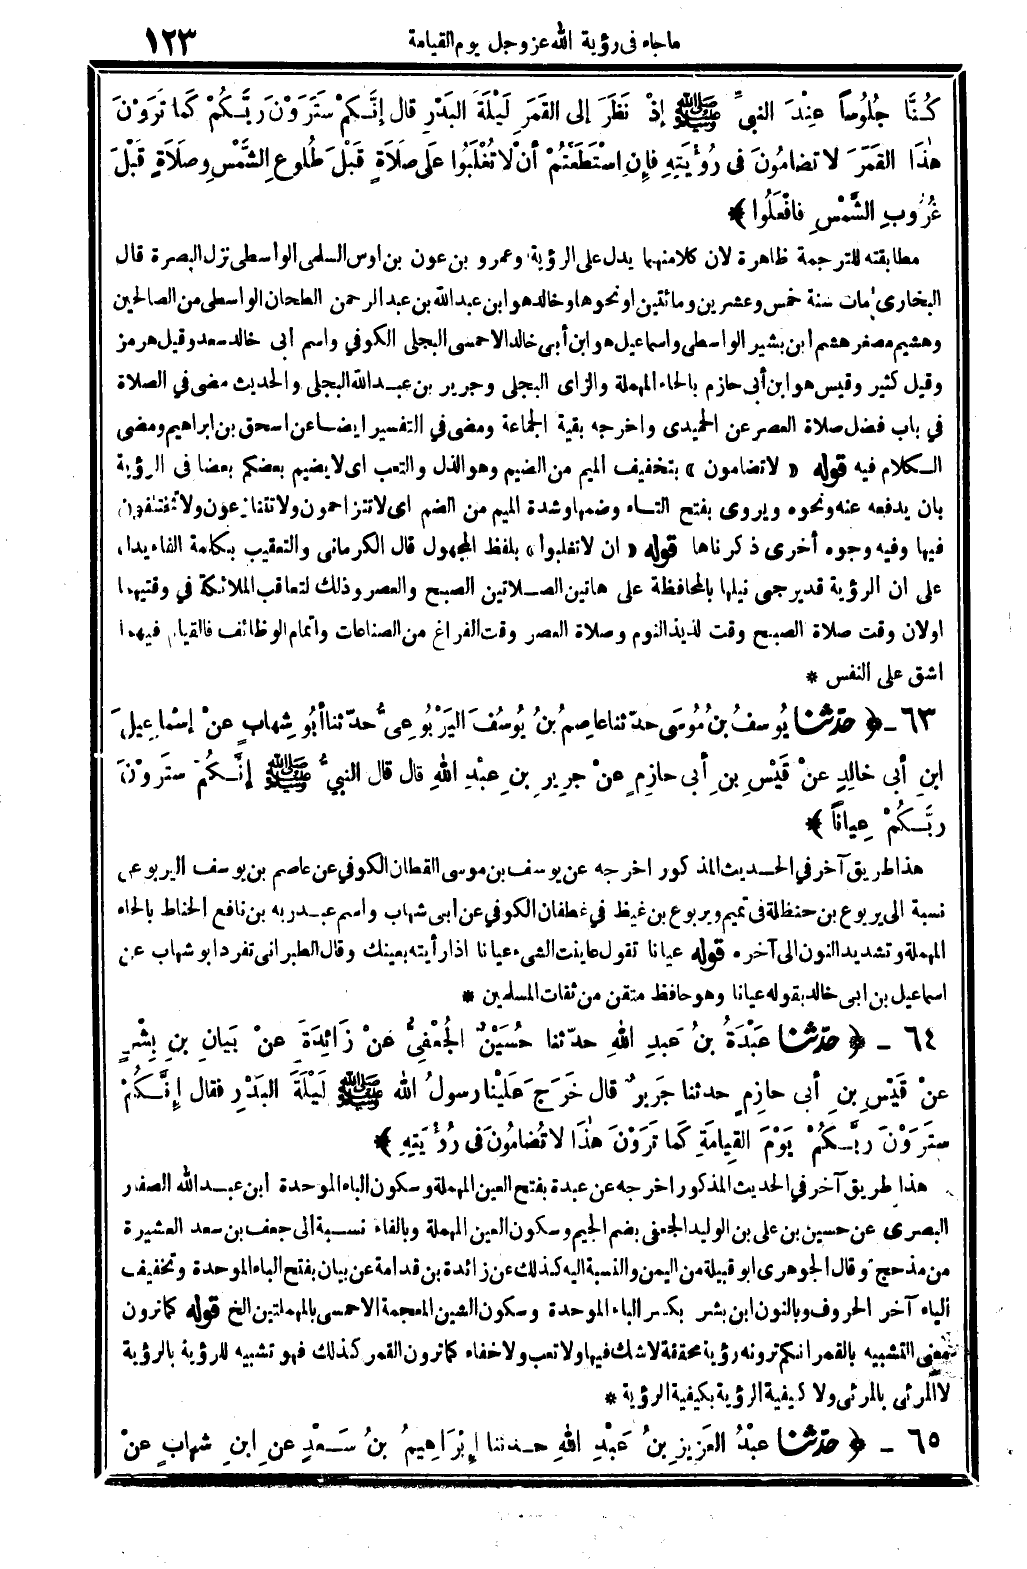 ماجاء فى رؤية الله عز وجل يوم القيامة ١٢٣
كُنَّا جُلُوساً عِنْدَ النبيِّ ﷺ إذْ نَظَرَ إلى القَمَرِ لَيْلَةَ البَدْرِ قال إنَّكمْ سَتَرَوْنَ رَبَّكُمْ كما تَرَوْنَ
هٰذَا القَمَرَ لا تضامُونَ فى رُؤْيَتِهِ فإنِ اسْتَطَعْتُمْ أنْ لا تُغْلَبُوا على صَلَاةٍ قَبْلَ طُلوعِ الشَّمْسِ وصَلَاةٍ قَبْلَ
غُرُوبِ الشَّمْسِ فافْعَلُوا ﴾
مطابقته للترجمة ظاهرة لان كلامنهما يدل على الرؤية وعمرو بن عون بن اوس السلمى الواسطى نزل البصرة قال
البخارى مات سنة خمس وعشرين ومائتين او نحوها وخالد هو ابن عبد الله بن عبد الرحمن الطحان الواسطى من الصالحين
وهشيم مصغر هشم ابن بشير الواسطى واسماعيل هو ابن أبى خالد الاحمسى البجلى الكوفي واسم ابى خالد سعد وقيل هرمز
وقيل كثير وقيس هو ابن أبى حازم بالحاء المهملة والزاى البجلى وجرير بن عبد الله البجلى والحديث مضى في الصلاة
في باب فضل صلاة العصر عن الحميدى واخرجه بقية الجماعة ومضى في التفسير ايضا عن اسحق بن ابراهيم ومضى
الكلام فيه قوله « لا تضامون » بتخفيف الميم من الضيم وهو الذل والتعب اى لا يضيم بعضكم بعضا فى الرؤية
بان يدفعه عنه ونحوه ويروى بفتح التاء وضمها وشدة الميم من الضم اى لا تتزاحمون ولا تتنازعون ولا تختلفون
فيها وفيه وجوه أخرى ذكرناها قوله « ان لا تغلبوا » بلفظ المجهول قال الكرمانى والتعقيب بكلمة الفاء يدل
على ان الرؤية قد يرجى نيلها بالمحافظة على هاتين الصلاتين الصبح والعصر وذلك لتعاقب الملائكة في وقتيهما
اولان وقت صلاة الصبح وقت لذيذ النوم وصلاة العصر وقت الفراغ من الصناعات واتمام الوظائف فالقيام فيهما
اشق على النفس *
٦٣ ـ ﴿ حدثنا يُوسفُ بنُ مُوسَى حدّثنا عاصِمُ بنُ يُوسُفَ اليَرْبُوعِىُّ حدّثنا أبُو شِهابٍ عنْ إسْماعِيلَ
ابنِ أبى خالِدٍ عنْ قَيْسِ بنِ أبى حازِمٍ عنْ جرِيرِ بنِ عبْدِ اللهِ قال قال النبيُّ ﷺ إنَّكُمْ ستَرَوْنَ
ربَّكُمْ عِياناً ﴾
هذا طريق آخر في الحديث المذكور اخرجه عن يوسف بن موسى القطان الكوفي عن عاصم بن يوسف اليربوعى
نسبة الى يربوع بن حنظلة فى تميم ويربوع بن غيظ في غطفان الكوفي عن ابى شهاب واسم عبد ربه بن نافع الحناط بالحاء
المهملة وتشديد النون الى آخره قوله عيانا تقول عاينت الشىء عيانا اذا رأيته بعينك وقال الطبرانى تفرد ابو شهاب عن
اسماعيل بن ابى خالد بقوله عيانا وهو حافظ متقن من ثقات المسلمين *
٦٤ ـ ﴿ حدثنا عَبْدَةُ بنُ عَبدِ اللهِ حدّثنا حُسَيْنٌ الجُعْفِىُّ عَنْ زَائِدَةَ عنْ بَيانِ بنِ بِشْرٍ
عنْ قَيْسِ بنِ أبى حازِمٍ حدثنا جَرِيرٌ قال خَرَجَ عَلَيْنا رسولُ الله ﷺ لَيْلَةَ البَدْرِ فقال إنَّكُمْ
ستَرَوْنَ ربَّكُمْ يَوْمَ القِيامَةِ كما تَرَوْنَ هٰذَا لا تُضامُونَ فى رُؤْيَتِهِ ﴾
هذا طريق آخر في الحديث المذكور اخرجه عن عبدة بفتح العين المهملة وسكون الباء الموحدة ابن عبد الله الصفار
البصرى عن حسين بن على بن الوليد الجعفى بضم الجيم وسكون العين المهملة وبالفاء نسبة الى جعف بن سعد العشيرة
من مذحج وقال الجوهرى ابو قبيلة من اليمن والنسبة اليه كذلك عن زائدة بن قدامة عن بيان بفتح الباء الموحدة وتخفيف
الياء آخر الحروف وبالنون ابن بشر بكسر الباء الموحدة وسكون الشين المعجمة الاحمسى بالمهملتين الخ قوله كما ترون
معنى التشبيه بالقمر انكم ترونه رؤية محققة لا شك فيها ولا تعب ولا خفاء كما ترون القمر كذلك فهو تشبيه للرؤية بالرؤية
لا المرئى بالمرئى ولا كيفية الرؤية بكيفية الرؤية *
٦٥ ـ ﴿ حدثنا عبْدُ العَزِيزِ بنُ عَبْدِ اللهِ حدثنا إبْرَاهِيمُ بنُ سَعْدٍ عنِ ابنِ شهابٍ عنْ